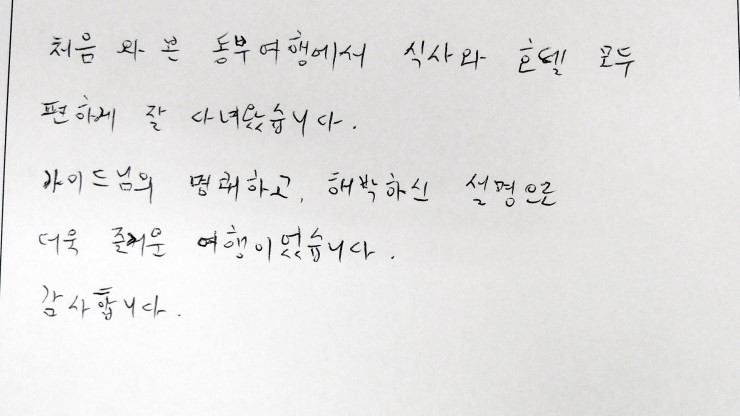 처음 와 본 동부여행에서 식사와 호텔 모두
편하게 잘 다녀왔습니다.
가이드님의 명쾌하고, 해박하신 설명으로
더욱 즐거운 여행이었습니다.
감사합니다.